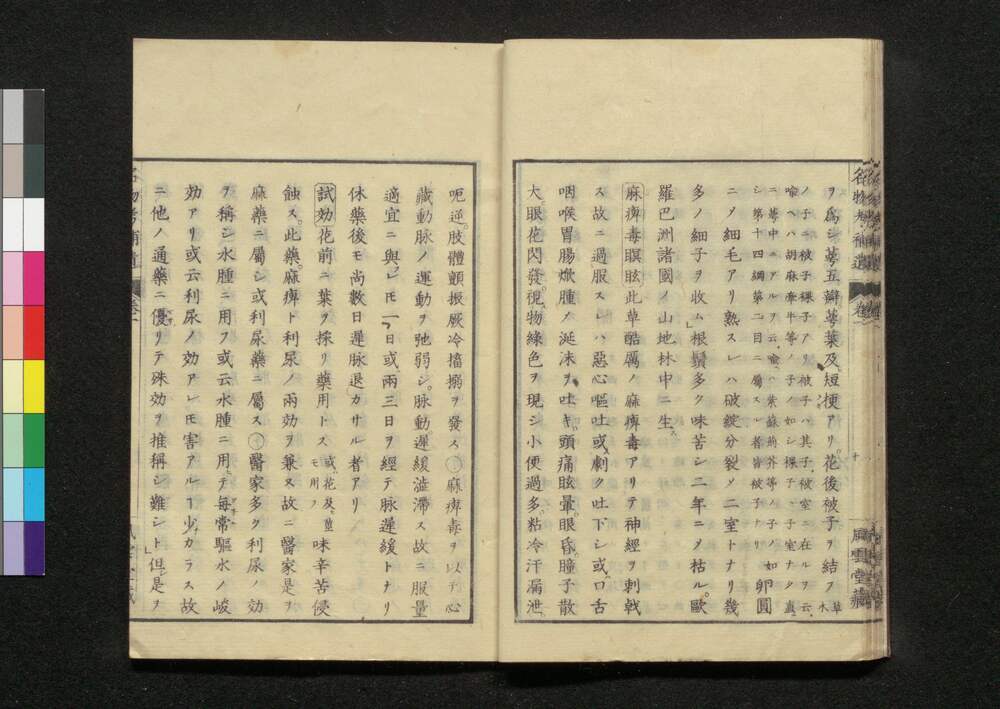 ヲ爲シ萼五瓣萼葉及短梗アリ花後被子ヲ結フ草木
ノ子ニ被子裸子アリ被子ハ其子被室ニ在ルヲ云
喩ヘハ胡麻牽牛等ノ子ノ如シ裸子ハ子室ナク直
ニ萼中ニアルヲ云喩ハ紫蘇荊芥等ノ子ノ如
シ第十四綱第二目ニ屬スル者皆被子ナリ
卵圓
ニノ細毛アリ熟スレハ破綻分裂ノ二室トナリ幾
多ノ細子ヲ收ム」根鬚多ク味苦シ二年ニノ枯ル歐
羅巴洲諸國ノ山地林中ニ生ス
麻痺毒瞑眩此草酷厲ノ麻痺毒アリテ神經ヲ刺戟
ス故ニ過服スレハ惡心嘔吐或劇ク吐下シ或口舌
咽喉胃腸焮腫ノ涎沫ヲ吐キ頭痛眩暈眼昏瞳子散
大眼花閃發視物綠色ヲ現シ小便過多粘冷汗漏泄
名物考補遺 卷一
十
風雲堂藏
呃逆肢體顫振厥冷搐搦ヲ發ス○麻痺毒ヲ以テ心
藏動脉ノ運動ヲ弛弱シ脉動遲緩澁滯ス故ニ服量
適宜ニ與フレモ一日或兩三日ヲ經テ脉遲緩トナリ
休藥後モ尚數日遲脉退カサル者アリ
試効花前ニ葉ヲ採リ藥用トス或花及莖モ用フ味辛苦侵
蝕ス此藥麻痺ト利尿ノ兩効ヲ兼ヌ故ニ醫家是ヲ
麻藥ニ屬シ或利尿藥ニ屬ス○醫家多ク利尿ノ効
ヲ稱シ水腫ニ用フ或云水腫ニ用ヒテ每常驅水ノ峻
効アリ或云利尿ノ効アレモ害アルヿ少カラス故
ニ他ノ通藥ニ優リテ殊効ヲ推稱シ難シト」但シ是ヲ
名物考補遺 卷一